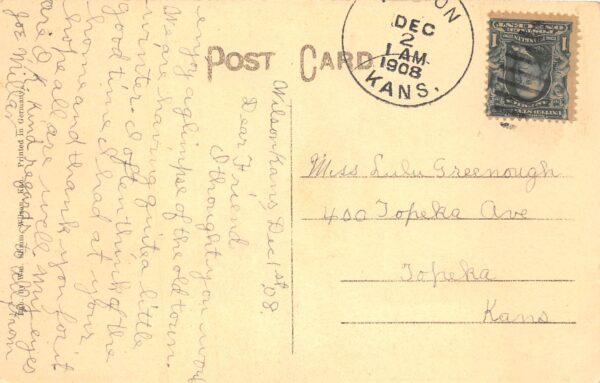 POST CARD
WILSON
DEC
2
1 AM
1908
KANS.
Wilson Kans, Dec 1st 08.
Dear Friend
I thought you wo
enjoy a glimpse of the old town.
We are having quite a little
winter. I often think of the
good time I had at your
home and thank you for it
hope all are well. My eyes
are O.K. Kind regards to all from
Joe Miller
Miss Lulu Greenough
400 Topeka Ave
Topeka
Kans
Printed in Germany